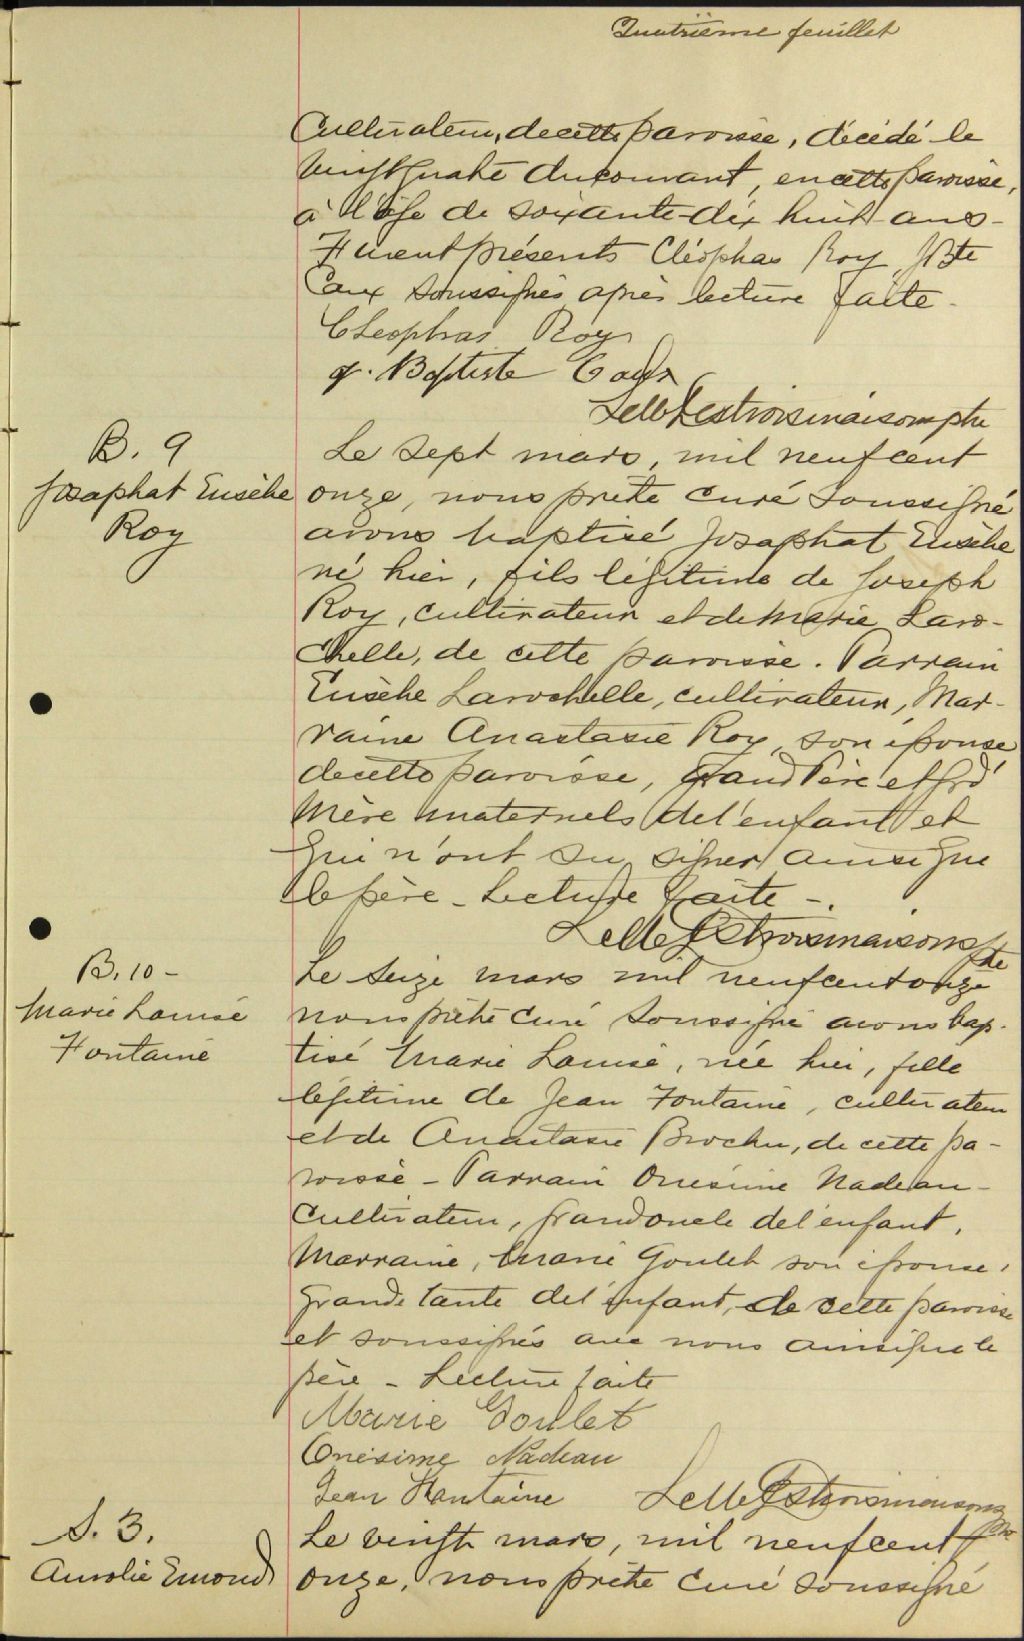 Quatrième feuillet
Cultivateur, de cette paroisse, décédé le
vingt quatre du courant, en cette paroisse,
à l'âge de soixante-dix huit ans-
Furent présents Cléophas Roy, JBte
Caux soussignés après lecture faite-
Cleophas Roy
J. Baptiste Caux
Destroismaisons ptre
B. 9
Josaphat Eusèbe
Roy
Le sept mars, mil neuf cent
onze, nous prêtre curé soussigné
avons baptisé Josaphat Eusèbe
né hier, fils légitime de Joseph
Roy, cultivateur et de Marie Laro-
chelle, de cette paroisse. Parrain
Eusèbe Larochelle, cultivateur, Mar-
raine Anastasie Roy, son épouse
de cette paroisse, Grand Père et grd
Mère maternels de l'enfant et
qui n'ont su signer ainsi que
le père - Lecture faite -.
Destroismaisons ptre
B. 10 -
Marie Louise
Fontaine
Le seize mars mil neuf cent onze
nous prêtre curé soussigné avons bap-
tisé Marie Louise, née hier, fille
légitime de Jean Fontaine, cultivateur
et de Anastasie Brochu, de cette pa-
roisse - Parrain Onésime Nadeau-
Cultivateur, grand oncle de l'enfant,
Marraine, Marie Goulet son épouse,
grande tante de l'enfant, de cette paroisse
et soussignés avec nous ainsi que le
père - Lecture faite
Marie Goulet
Onésime Nadeau
Jean Fontaine Destroismaisons ptre
S. 3.
Aurélie Emond
Le vingt mars, mil neuf cent
onze, nous prêtre curé soussigné